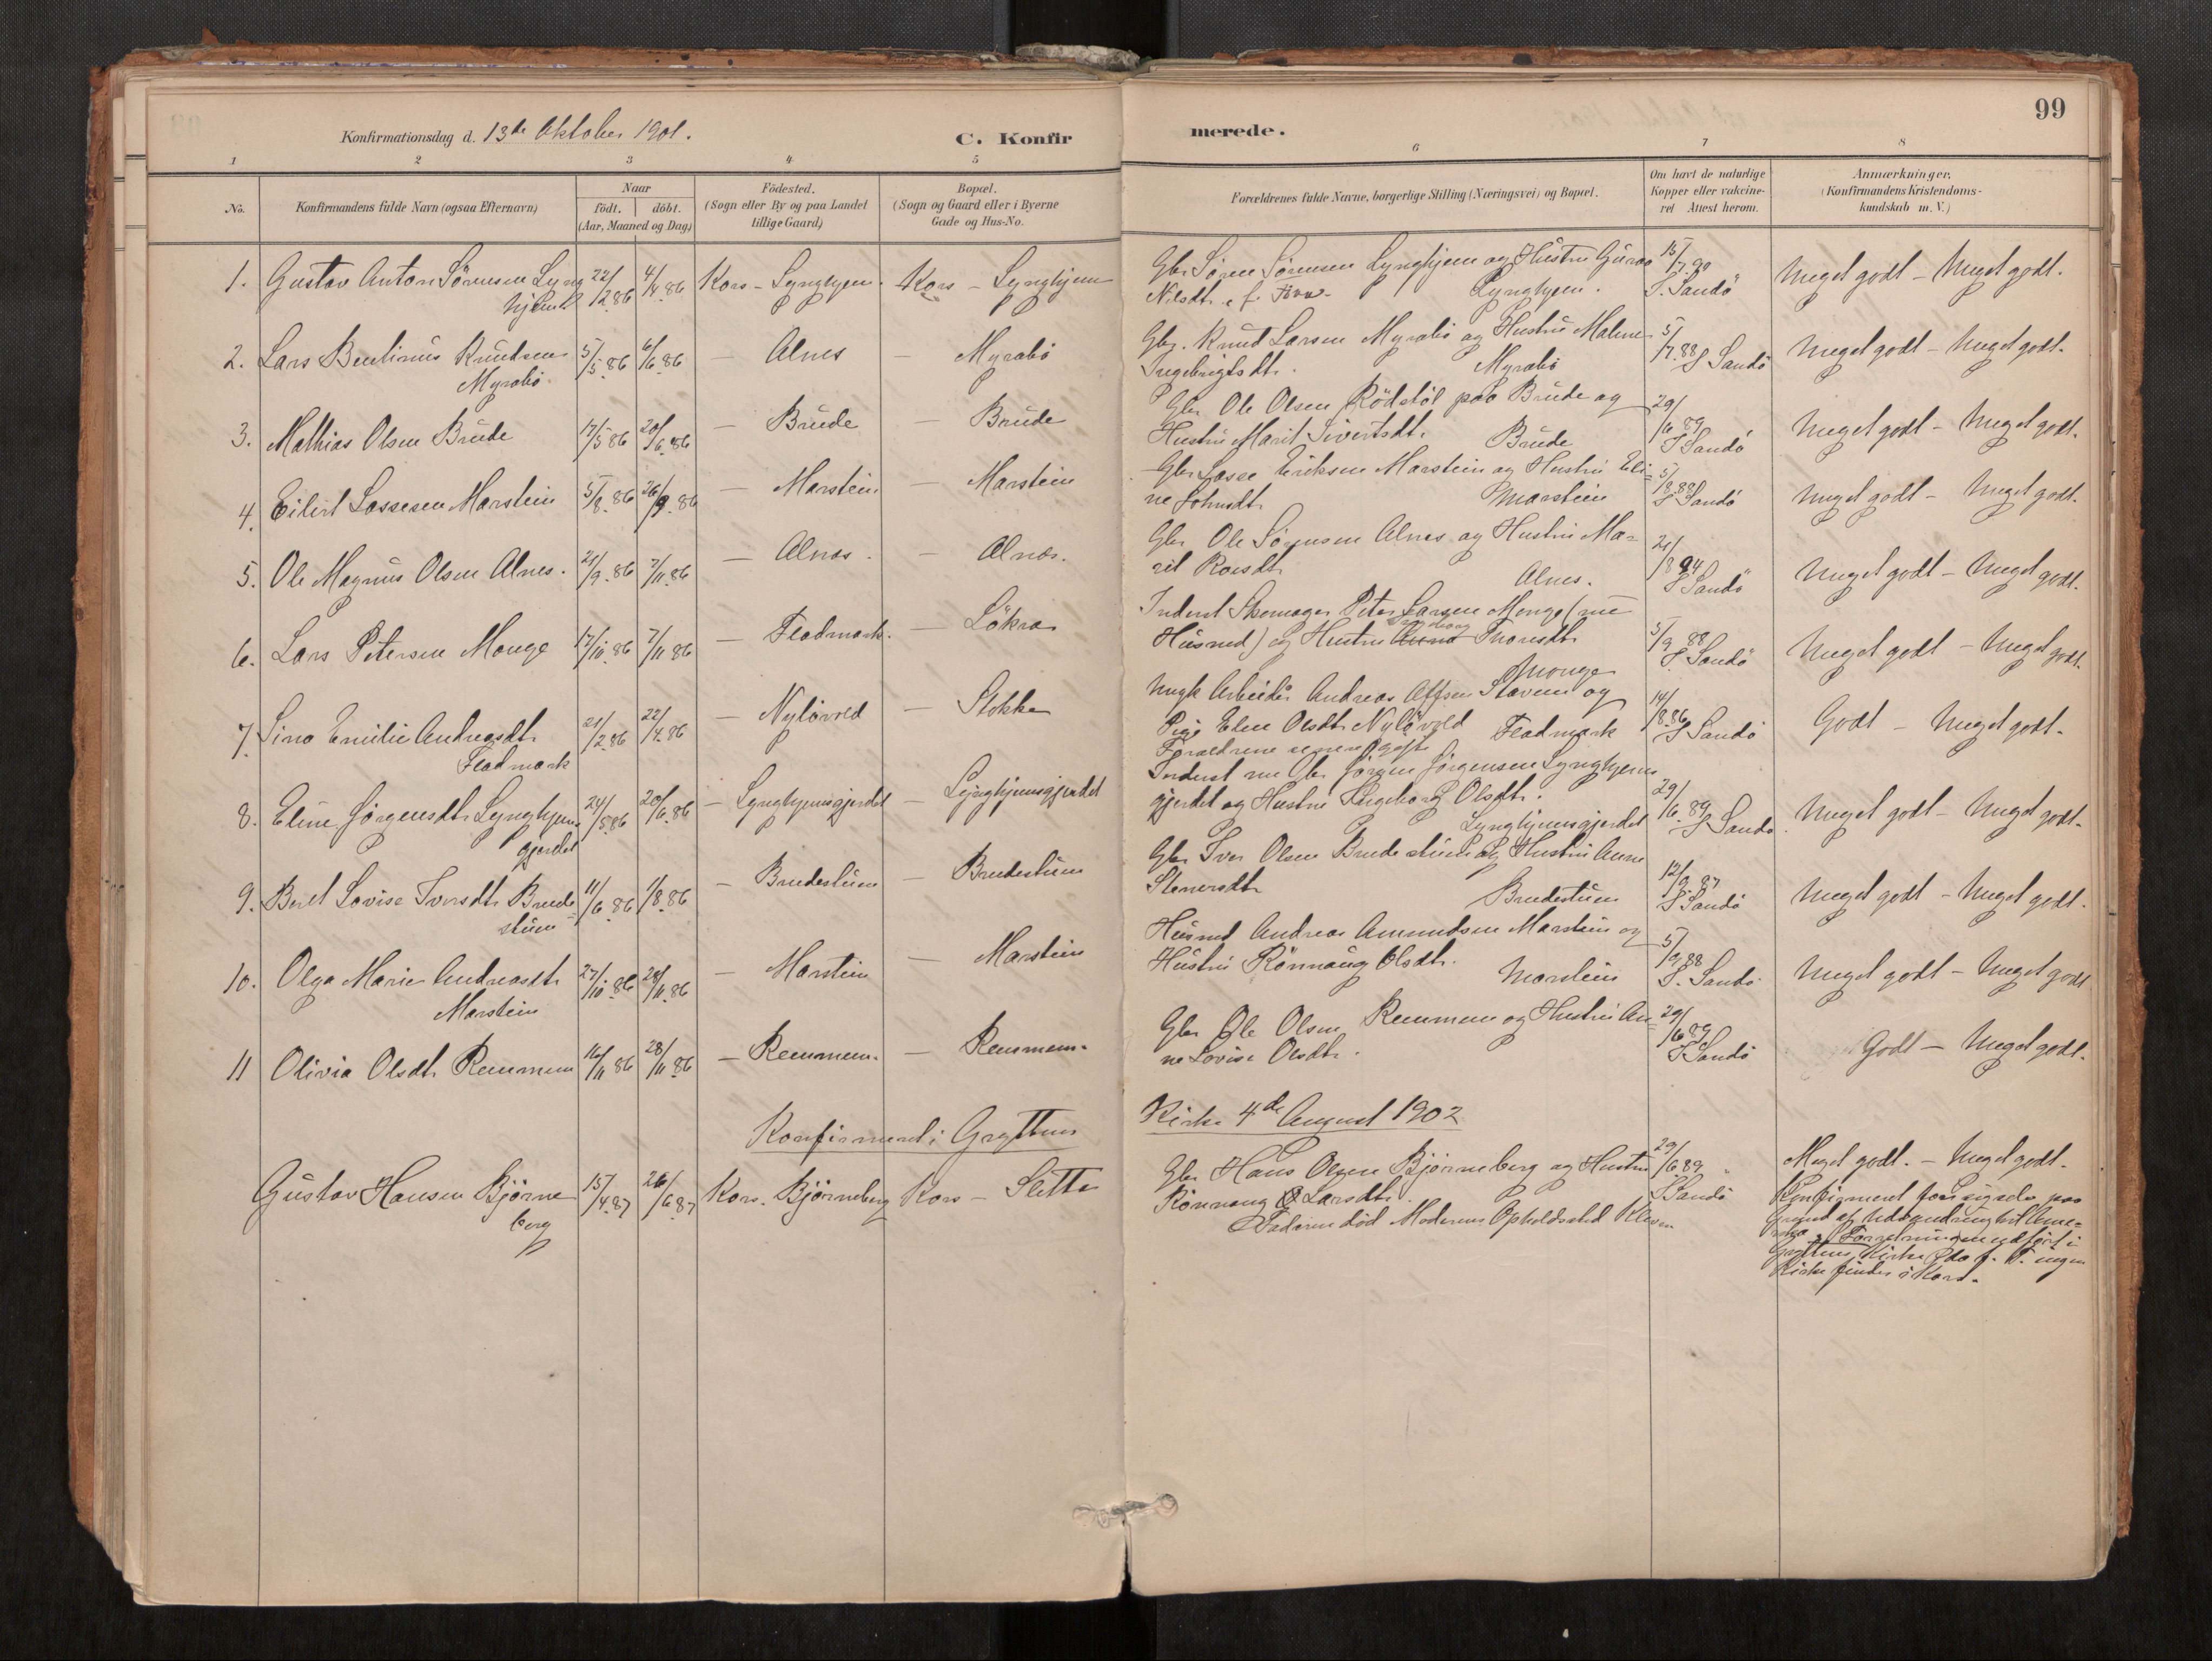 99
Konfirmationsdag d. 13de Oktober 1901.
C. Konfir
merede.
1 2 3 4 5
6 7 8
No.
Konfirmandens fulde Navn (ogsaa Efternavn)
Naar
födt. döbt.
(Aar, Maaned og Dag)
Födested.
(Sogn eller By og paa Landet
tillige Gaard)
Bopæl.
(Sogn og Gaard eller i Byerne
Gade og Hus-No.
Forældrenes fulde Navne, borgerlige Stilling (Næringsvei) og Bopæl.
Om havt de naturlige
Kopper eller vakcine-
ret Attest herom.
Anmærkninger.
(Konfirmandens Kristendoms-
kundskab m. V.)
1. Gustav Anton Sörensen Lyng
hjem 22/2.86 4/4.86 Kors - Lynghjem. Kors - Lynghjem
Gbr Søren Sörensen Lynghjem og Hustru Guroa
Nilsdt. Lynghjem.
15/7.90
S. Sandö
Meget godt - Meget godt.
2. Lars Bentinus Knudsen
Myrabö. 5/5.86 6/6.86 - Alnes - Myrabö
Gbr. Knud Larsen Myrabö og Hustru Malene
Ingebrigtsdt. Myrabö
5/7.88
S Sandö
Meget godt - Meget godt.
3. Mathias Olsen Brude 17/5.86 20/6.86 - Brude - Brude
Gbr Ole Olsen Rödstöl paa Brude og
Hustru Marit Sivertsdt. Brude
29/6 89
S Sandö
Meget godt - Meget godt.
4. Eilert Lassesen Marstein 5/8.86 26/9.86 - Marstein - Marstein
Gbr Lasse Eriksen Marstein og Hustru Eli=
ne Johnsdt. Marstein
5/8.88
S Sandö
Meget godt - Meget godt.
5. Ole Magnus Olsen Alnes. 21/9.86 7/11.86 - Alnes. - Alnes.
Gbr Ole Sörensen Alnes og Hustru Ma=
rit Roesdt. Alnes.
21/8 94
S Sandö
Meget godt - Meget godt.
6. Lars Petersen Monge 17/10.86 7/11.86 - Fladmark. - Lökra
Inderst Skomager Peter Larsen Monge (nu
Husmd) og Hustru Anna Ingeborg Thoresdt.
Monge
5/9 88
S. Sandö
Meget godt - Meget godt.
7. Sina Emilie Andreasdt.
Fladmark 21/2.86 22/4.86 - Nylövold - Stokke
Ungk Arbeider Andreas Stavem og
Pige Eline Olsdt. Nylövold Fladmark
Forældrene senere gift.
14/8.86
S Sandö
Godt - Meget godt.
8. Eline Jörgensdt. Lynghjems
gjerdet 24/5.86 20/6.86 - Lynghjemsgjerdet - Lynghjemsgjerdet
Inderst nu Gbr Jörgen Jörgensen Lynghjems
gjerdet og Hustru Ingeborg Olsdt.
Lynghjemsgjerdet
29/6.89
S Sandö.
Meget godt - Meget godt.
9. Beret Lovise Iversdt. Brude
stuen 11/6.86 1/8.86 - Brudestuen - Brudestuen
Gbr Iver Olsen Brudestuen og Hustru Anne
Stenersdt. Brudestuen
12/9.87
S Sandö
Meget godt - Meget godt.
10. Olga Marie Andreasdt.
Marstein 27/10.86 28/11.86 - Marstein - Marstein
Husmd Andreas Amundsen Marstein og
Hustru Rönnaug Olsdt. Marstein
5/9 88
S. Sandö
Meget godt - Meget godt
11 Olivia Olsdt. Remmem 16/11 86 28/11.86 - Remmem. - Remmem.
Gbr Ole Olsen Remmem og Hustru An=
ne Lovise Olsdt.
29/6 89
S Sandö
Godt - Meget godt.
Konfirmeret i Gryttens Kirke 4de August 1902
Gustav Hansen Bjørne
berg 15/4.87 26/6 87 Kors. Bjørneberg Kors - Sletta
Gbr Hans Olsen Bjørneberg og Hustru
Rönnaug Larsdt.
Faderen död Moderens Opholdssted Kleven
29/6 89
S Sandö
Meget godt. - Meget godt.
Konfirmeret saa paa
Grund af Udvandring til Ame=
rika. Forretningen udfört i
Gryttens Kirke da f. T. ingen
Kirke findes i Kors.